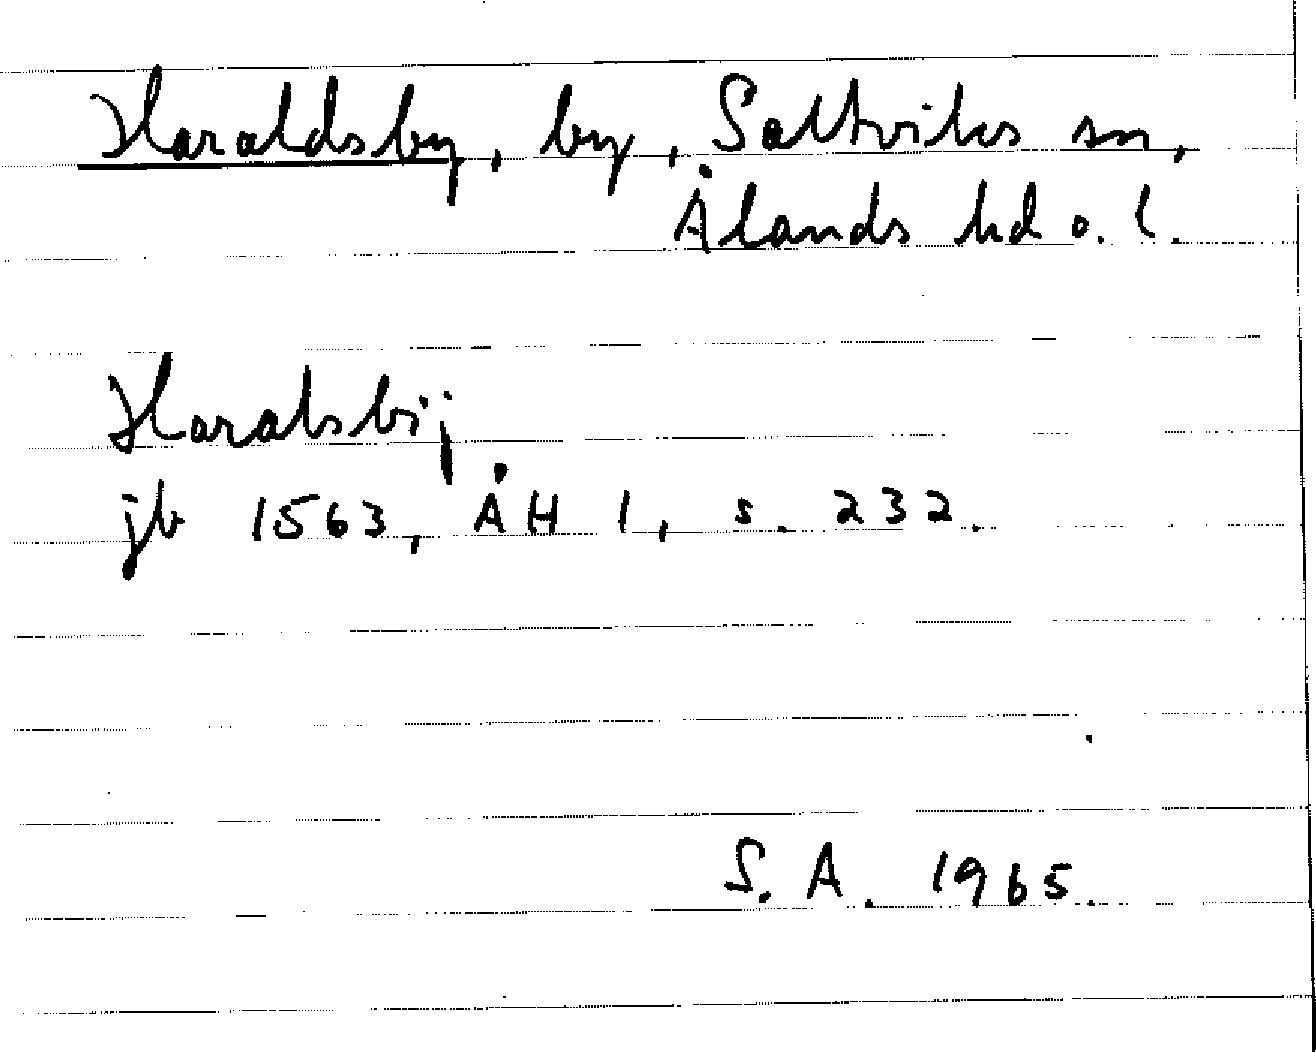 Haraldsby, by, Saltviks sn,
Ålands hd o. l.
Haralsbij
jb 1563, ÅH 1, s. 232.
S. A. 1965.